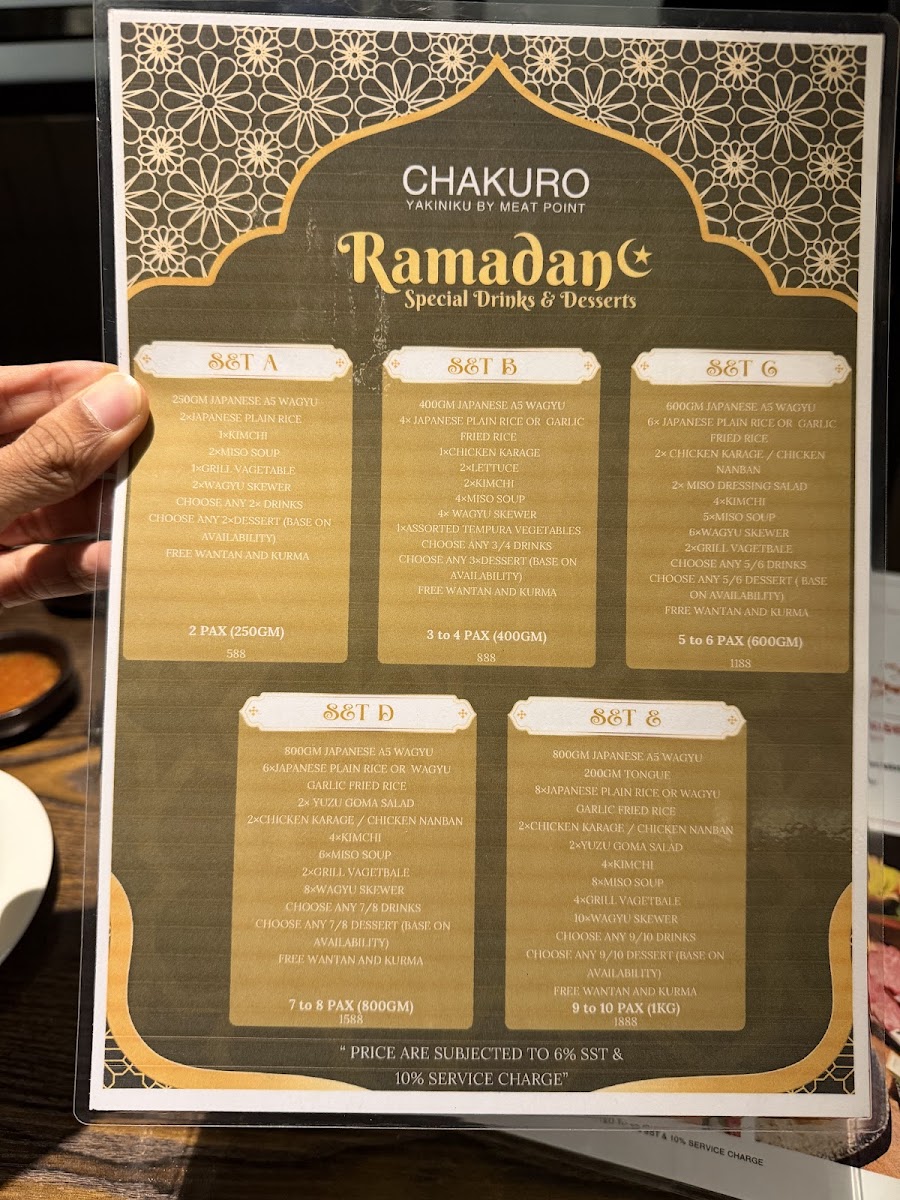 CHAKURO
YAKINIKU BY MEAT POINT
Ramadan
Special Drinks & Desserts
SET A
250GM JAPANESE A5 WAGYU
2×JAPANESE PLAIN RICE
1×KIMCHI
2×MISO SOUP
1×GRILL VAGETABLE
2×WAGYU SKEWER
CHOOSE ANY 2× DRINKS
CHOOSE ANY 2×DESSERT (BASE ON
AVAILABILITY)
FREE WANTAN AND KURMA
2 PAX (250GM)
588
SET B
400GM JAPANESE A5 WAGYU
4× JAPANESE PLAIN RICE OR GARLIC
FRIED RICE
1×CHICKEN KARAGE
2×LETTUCE
2×KIMCHI
4×MISO SOUP
4× WAGYU SKEWER
1×ASSORTED TEMPURA VEGETABLES
CHOOSE ANY 3/4 DRINKS
CHOOSE ANY 3×DESSERT (BASE ON
AVAILABILITY)
FREE WANTAN AND KURMA
3 to 4 PAX (400GM)
888
SET C
600GM JAPANESE A5 WAGYU
6× JAPANESE PLAIN RICE OR GARLIC
FRIED RICE
2× CHICKEN KARAGE / CHICKEN
NANBAN
2× MISO DRESSING SALAD
4×KIMCHI
5×MISO SOUP
6×WAGYU SKEWER
2×GRILL VAGETBALE
CHOOSE ANY 5/6 DRINKS
CHOOSE ANY 5/6 DESSERT ( BASE
ON AVAILABILITY)
FRRE WANTAN AND KURMA
5 to 6 PAX (600GM)
1188
SET D
800GM JAPANESE A5 WAGYU
6×JAPANESE PLAIN RICE OR WAGYU
GARLIC FRIED RICE
2× YUZU GOMA SALAD
2×CHICKEN KARAGE / CHICKEN NANBAN
4×KIMCHI
6×MISO SOUP
2×GRILL VAGETBALE
8×WAGYU SKEWER
CHOOSE ANY 7/8 DRINKS
CHOOSE ANY 7/8 DESSERT (BASE ON
AVAILABILITY)
FREE WANTAN AND KURMA
7 to 8 PAX (800GM)
1588
SET E
800GM JAPANESE A5 WAGYU
200GM TONGUE
8×JAPANESE PLAIN RICE OR WAGYU
GARLIC FRIED RICE
2×CHICKEN KARAGE / CHICKEN NANBAN
2×YUZU GOMA SALAD
4×KIMCHI
8×MISO SOUP
4×GRILL VAGETBALE
10×WAGYU SKEWER
CHOOSE ANY 9/10 DRINKS
CHOOSE ANY 9/10 DESSERT (BASE ON
AVAILABILITY)
FREE WANTAN AND KURMA
9 to 10 PAX (1KG)
1888
“ PRICE ARE SUBJECTED TO 6% SST &
10% SERVICE CHARGE”
SST & 10% SERVICE CHARGE